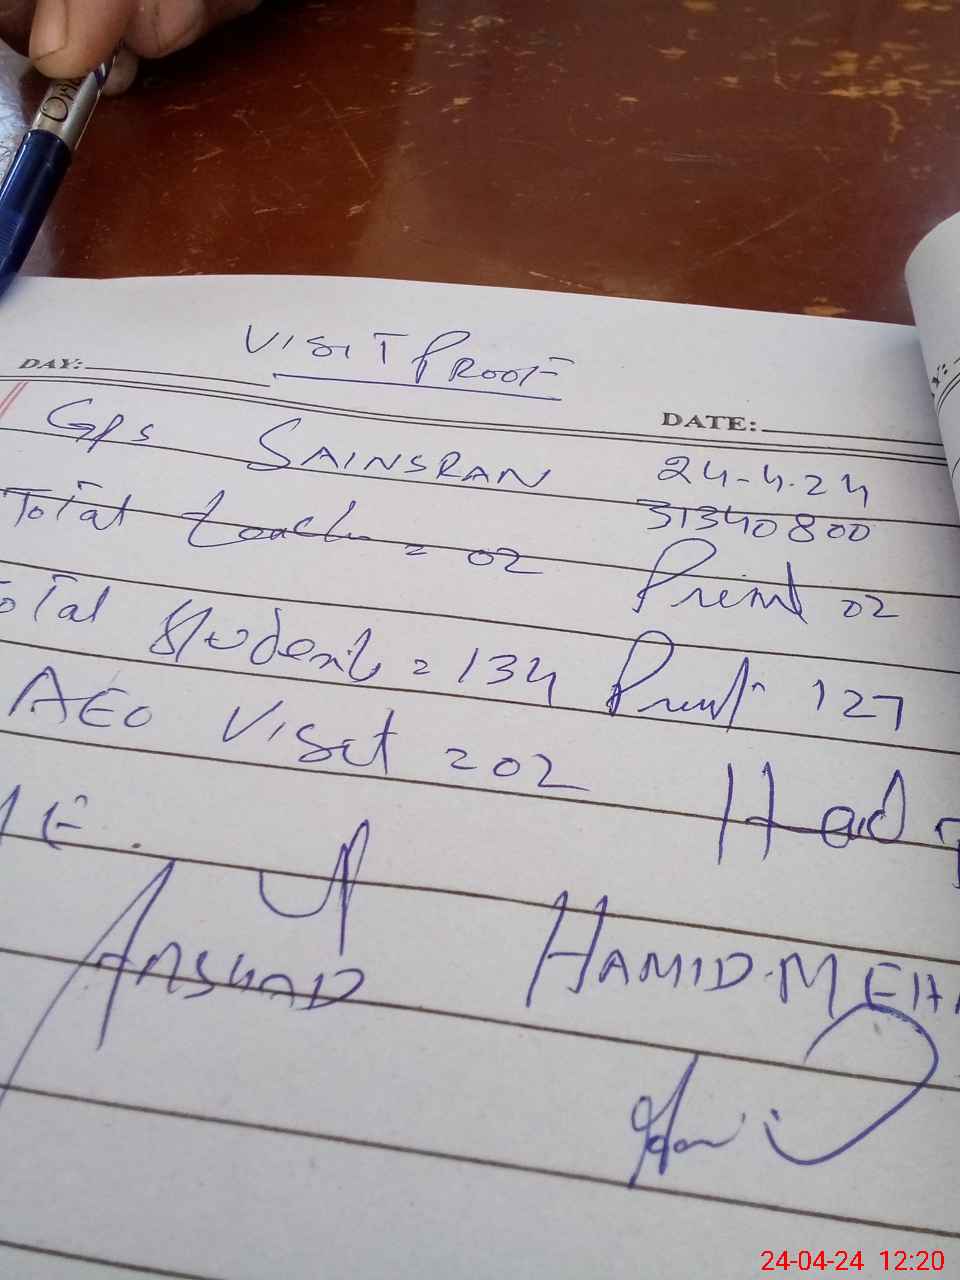 VISIT PROOF
DAY:
DATE:
GPS SAINSRAN 24-4-24
31340800
Total teach = 02 Present 02
Total Student = 134 Present 127
AEO Visit = 02
Head
ARSHAD
HAMID. MEH
24-04-24 12:20